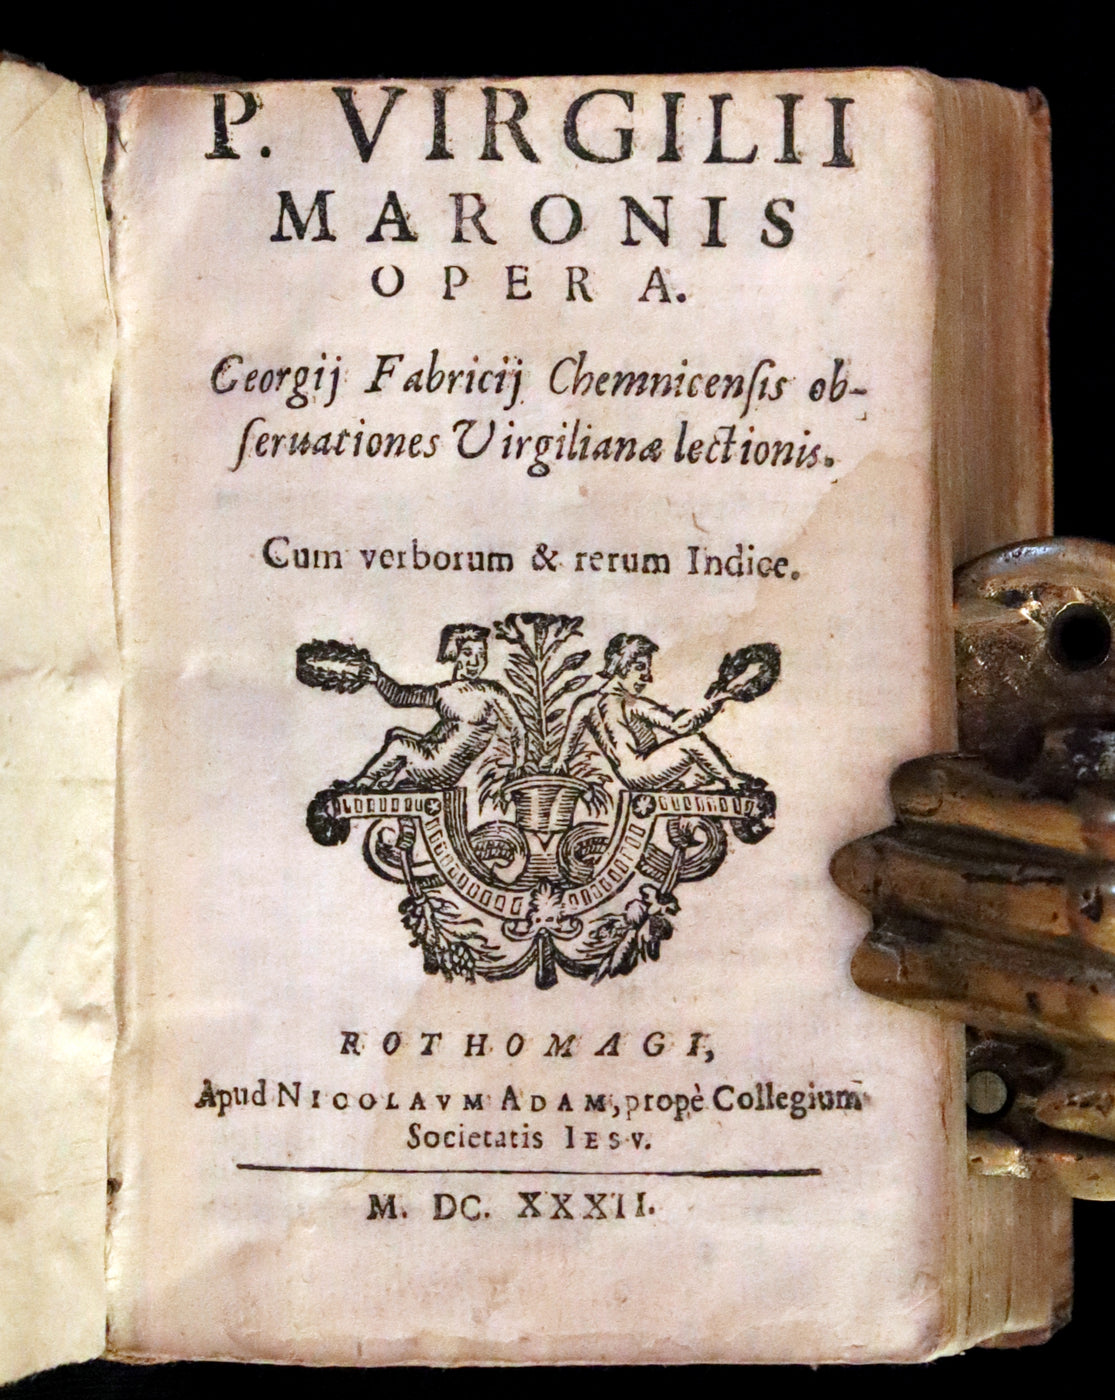 P. VIRGILII
MARONIS
OPERA.
Georgij Fabricij Chemnicenſis ob-
ſeruationes Virgilianæ lectionis.
Cum verborum & rerum Indice.
ROTHOMAGI,
Apud NICOLAVM ADAM, propè Collegium
Societatis IESV.
M. DC. XXXII.